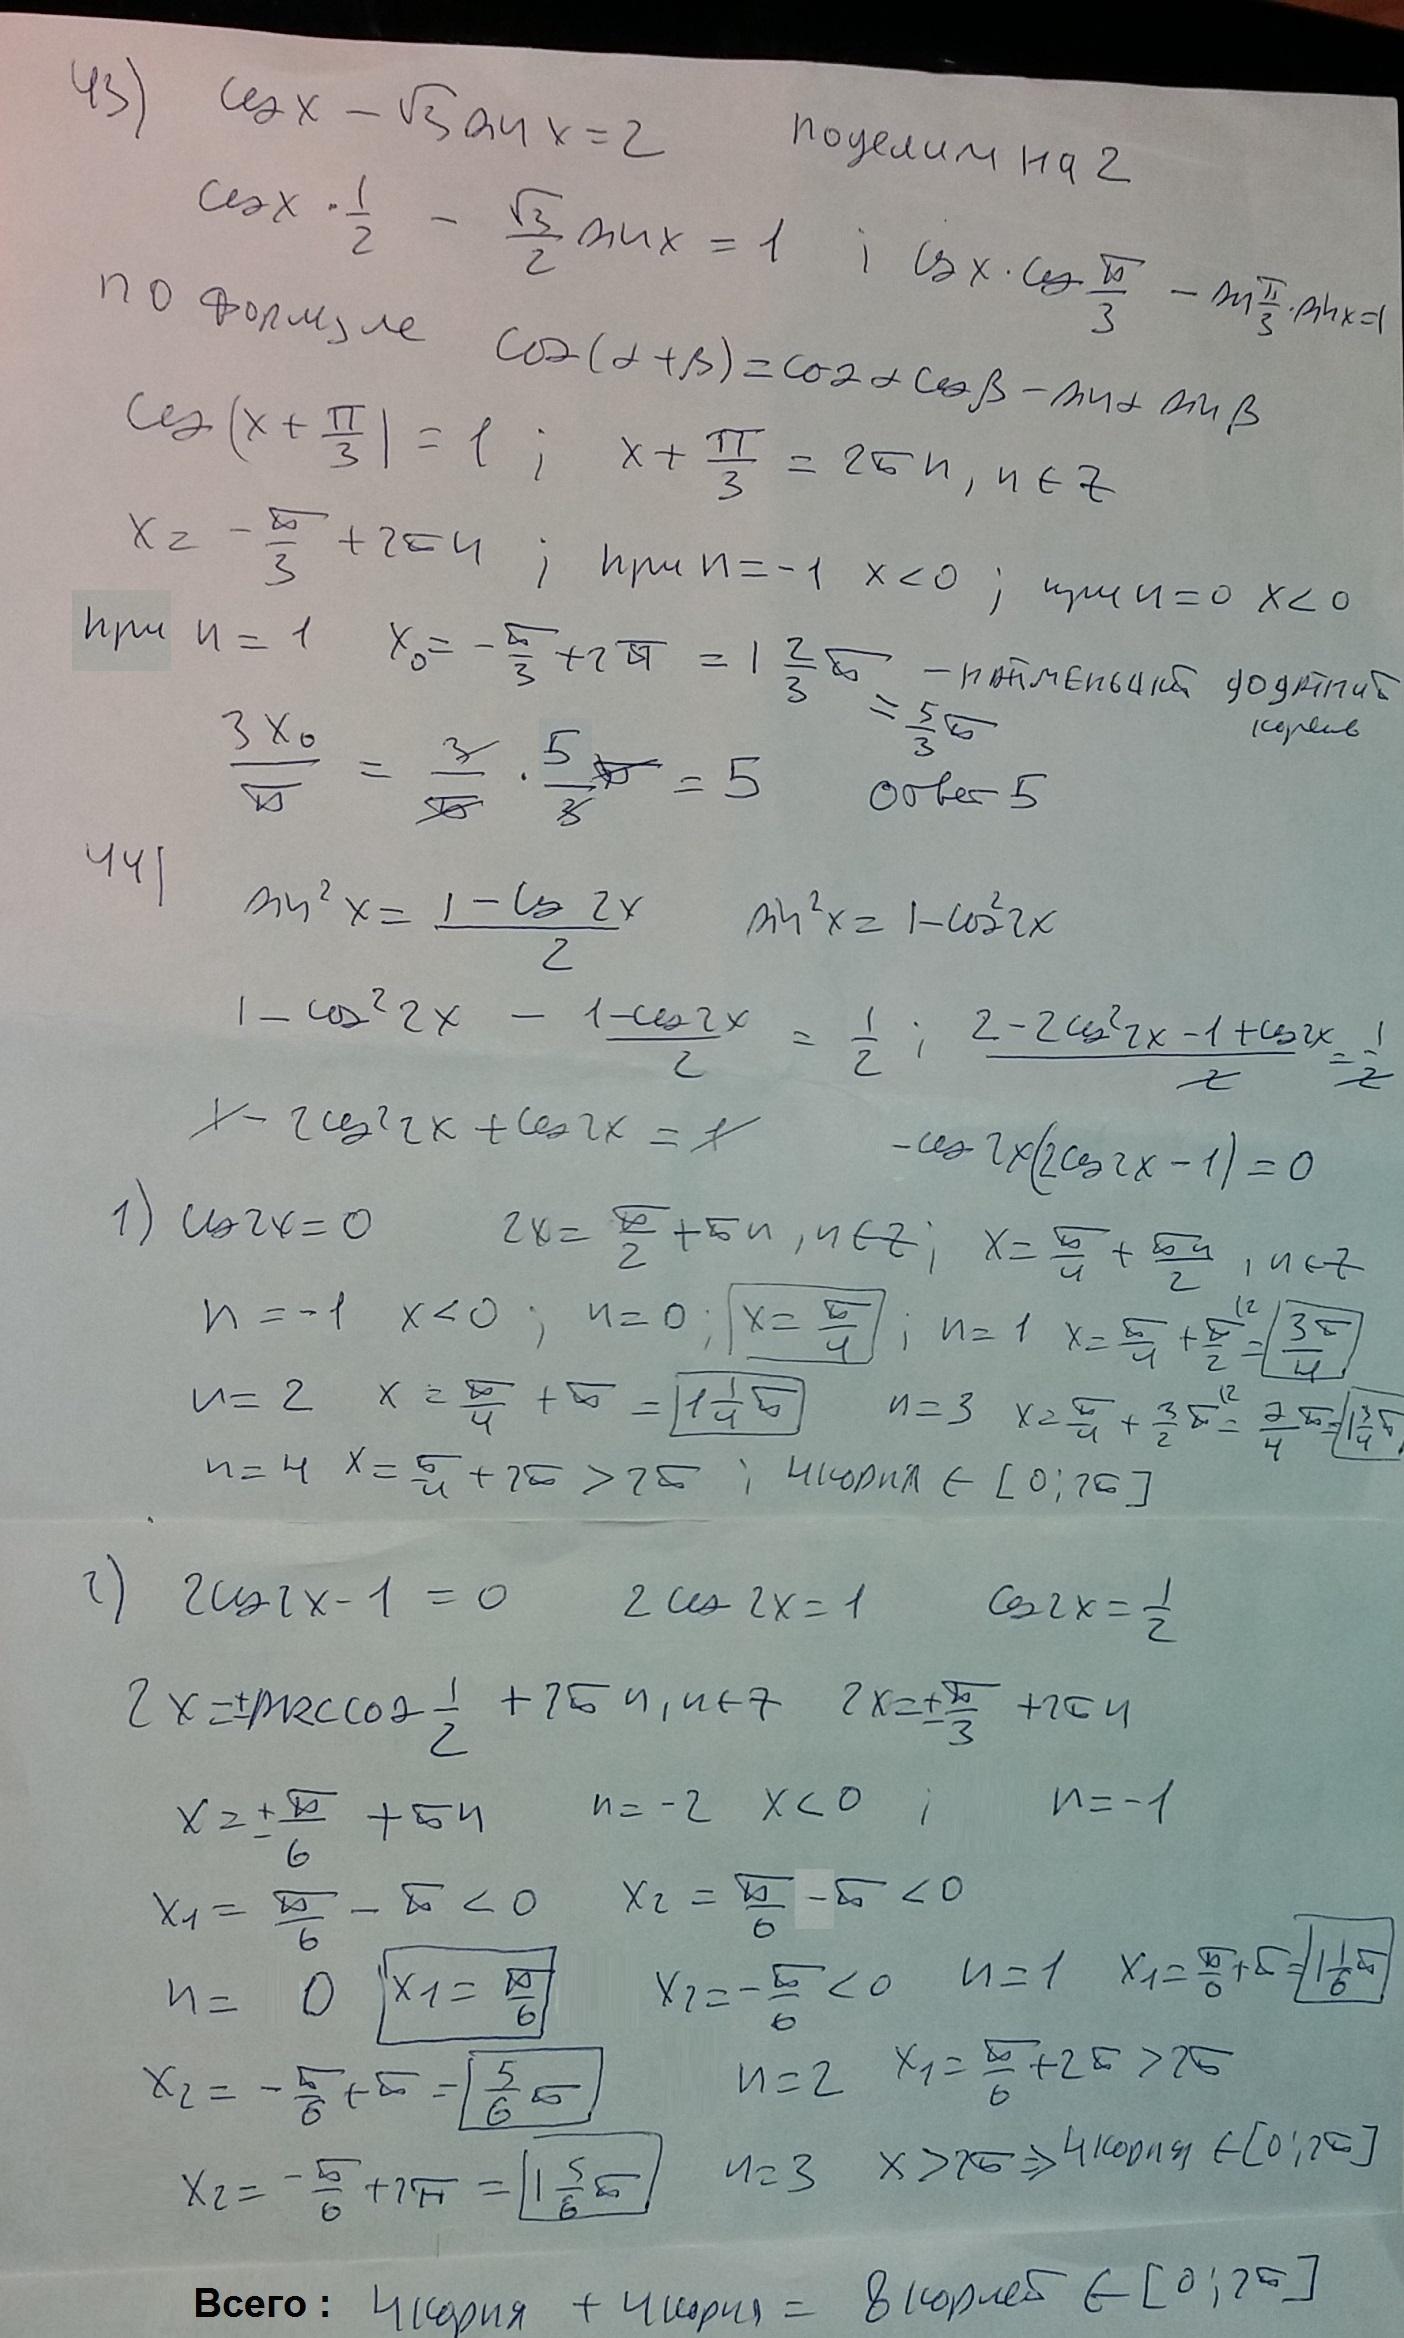 43) cosx - √3 sinx = 2 поделим на 2
cosx · 1/2 - √3/2 sinx = 1 ; cosx · cos π/3 - sin π/3 · sinx = 1
по формуле cos(α+β) = cosα cosβ - sinα sinβ
cos(x + π/3) = 1 ; x + π/3 = 2πn, n ∈ Z
x = -π/3 + 2πn ; при n = -1 x < 0 ; при n = 0 x < 0
при n = 1 x₀ = -π/3 + 2π = 1 2/3 π - найменьший додатний корень
= 5/3 π
3x₀/π = 3/π · 5/3 π = 5 ответ 5
44)
sin²x = (1 - cos 2x)/2 sin²x = 1 - cos²2x
1 - cos²2x - (1 - cos2x)/2 = 1/2 ; (2 - 2cos²2x - 1 + cos2x)/2 = 1/2
1 - 2cos²2x + cos2x = 1 -cos2x(2cos2x - 1) = 0
1) cos2x = 0 2x = π/2 + πn, n ∈ Z ; x = π/4 + πn/2, n ∈ Z
n = -1 x < 0 ; n = 0 ; x = π/4 ; n = 1 x = π/4 + π/2 (2 = 3π/4
n = 2 x = π/4 + π = 1 1/4 π n = 3 x = π/4 + 3/2 π (2 = 7/4 π = 1 3/4 π
n = 4 x = π/4 + 2π > 2π ; 4 корня ∈ [0; 2π]
2) 2cos2x - 1 = 0 2cos2x = 1 cos2x = 1/2
2x = ±arccos 1/2 + 2πn, n ∈ Z 2x = ±π/3 + 2πn
x = ±π/6 + πn n = -2 x < 0 ; n = -1
x₁ = π/6 - π < 0 x₂ = π/6 - π < 0
n = 0 x₁ = π/6 x₂ = -π/6 < 0 n = 1 x₁ = π/6 + π = 1 1/6 π
x₂ = -π/6 + π = 5/6 π n = 2 x₁ = π/6 + 2π > 2π
x₂ = -π/6 + 2π = 1 5/6 π n = 3 x > 2π ⇒ 4 корня ∈ [0; 2π]
Всего : 4 корня + 4 корня = 8 корней ∈ [0; 2π]